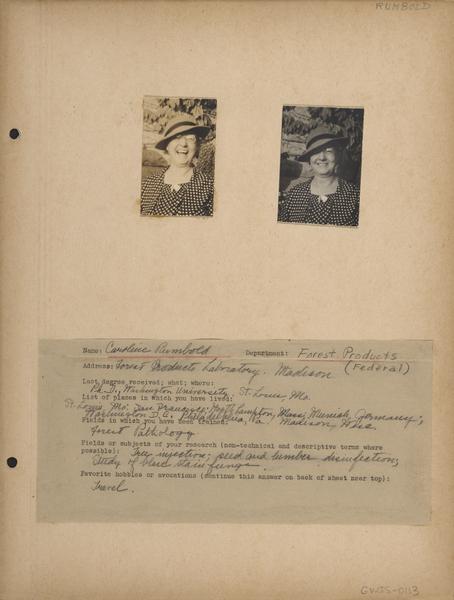 RUMBOLD
Name: Caroline Rumbold Department: Forest Products
(Federal)
Address: Forest Products Laboratory. Madison
Last degree received; what; where:
Ph.D., Washington University, St. Louis, Mo.
List of places in which you have lived:
St. Louis, Mo; San Francisco; Northampton, Mass; Munich, Germany;
Washington D.C., Philadelphia, Pa. Madison, Wisc.
Fields in which you have been trained:
Forest Pathology
Fields or subjects of your research (non-technical and descriptive terms where
possible): Tree injection; seed and lumber disinfection;
Study of blue stain fungi.
Favorite hobbies or avocations (continue this answer on back of sheet near top):
Travel.
GVJS-0113